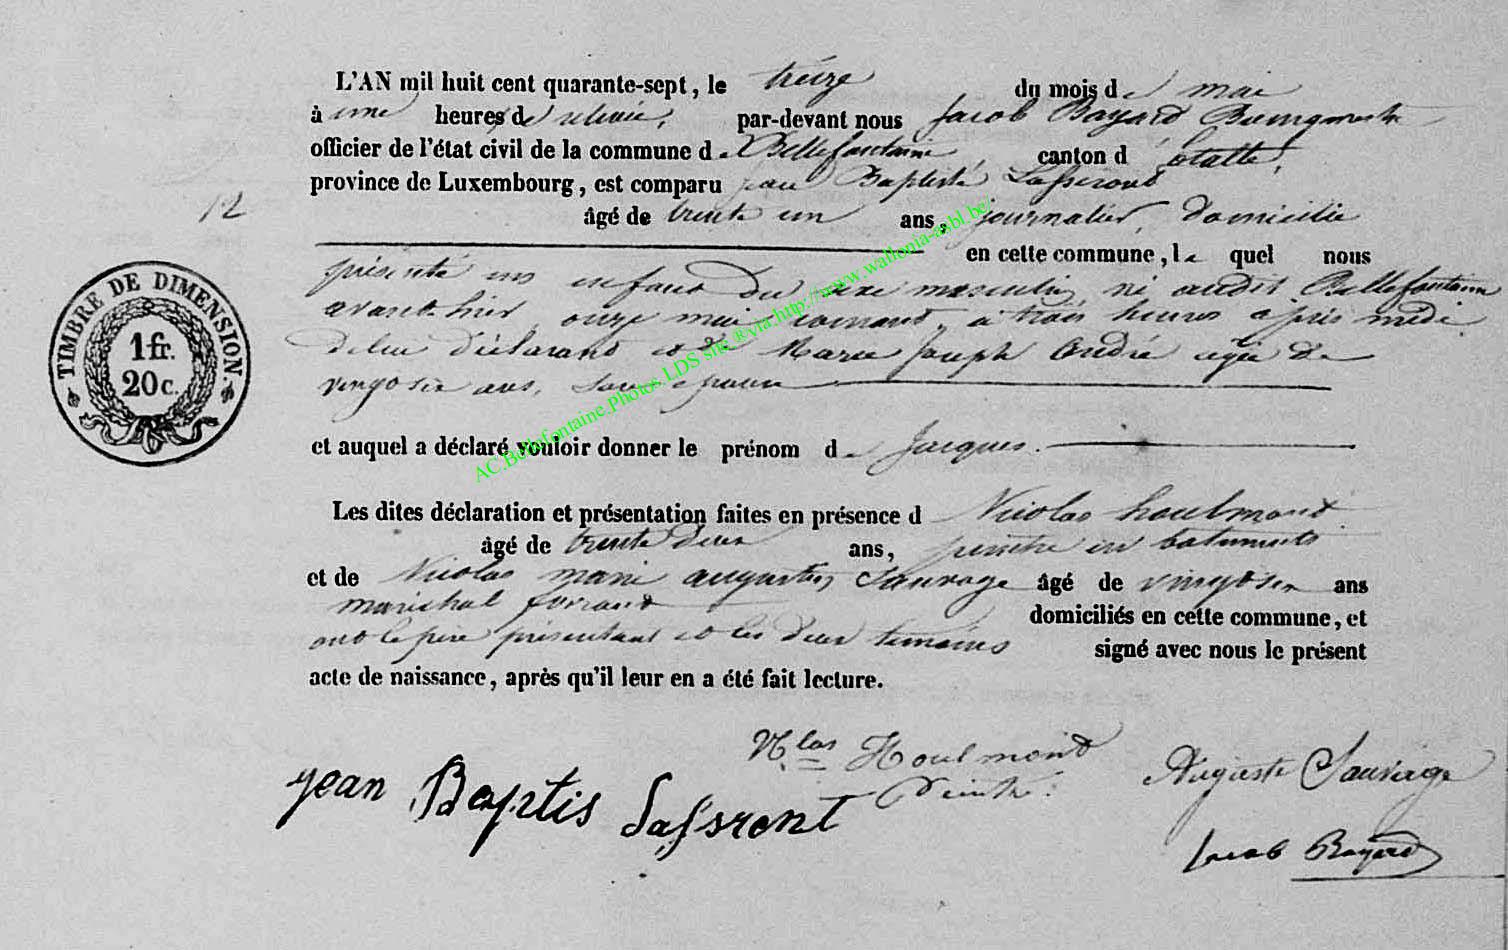 L'AN mil huit cent quarante-sept, le treize du mois de mai
à une heures de relevée, par-devant nous Jacob Bayard Bourgmestre
officier de l'état civil de la commune de Bellefontaine, canton d'Etalle,
province de Luxembourg, est comparu Jean Baptiste Lasseront
12
âgé de trente un ans, journalier, domicilié
en cette commune, le quel nous
présenté un enfant du sexe masculin, né audit Bellefontaine
avant hier onze mai courant, à trois heures après midi
de lui déclarant et de Marie Joseph André agée de
vingt six ans, son épouse
TIMBRE DE DIMENSION
1 fr.
20 c.
et auquel a déclaré vouloir donner le prénom de Jacques.
Les dites déclaration et présentation faites en présence d Nicolas houlmont
âgé de trente deux ans, peintre en batiments
et de Nicolas marie augustin Sauvage âgé de vingt six ans
maréchal ferrant domiciliés en cette commune, et
ont le père présentant et les deux temoins signé avec nous le présent
acte de naissance, après qu'il leur en a été fait lecture.
Nlas Houlmont
Peintre
Auguste Sauvage
jean Baptis Lassront
Jacob Bayard
AC.Bellefontaine.Photos.LDS site ®via.http://www.wallonia-asbl.be/